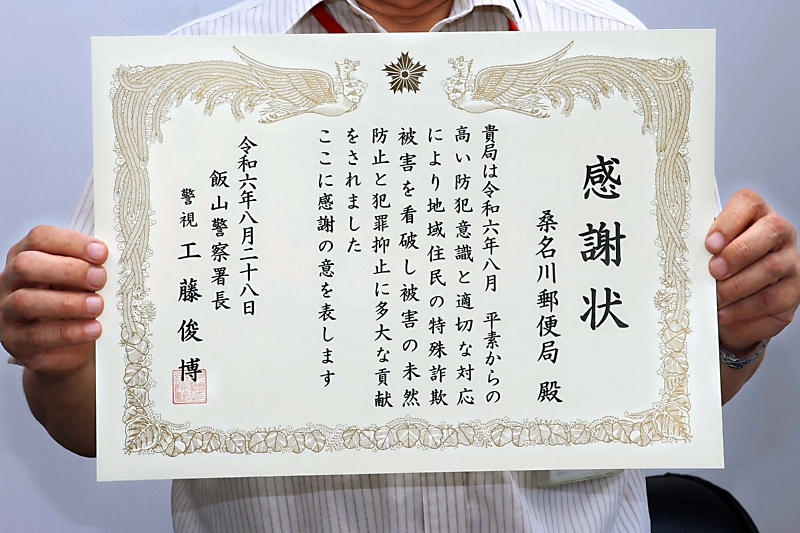 感謝状
桑名川郵便局 殿
貴局は令和六年八月 平素からの
高い防犯意識と適切な対応
により地域住民の特殊詐欺
被害を看破し被害の未然
防止と犯罪抑止に多大な貢献
をされました
ここに感謝の意を表します
令和六年八月二十八日
飯山警察署長
警視 工藤俊博